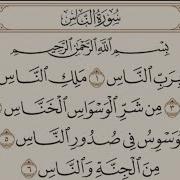 سُورَةُ النَّاسِ
بِسْمِ اللَّهِ الرَّحْمَٰنِ الرَّحِيمِ
بِرَبِّ النَّاسِ ١ مَلِكِ النَّاسِ
٣ مِن شَرِّ الْوَسْوَاسِ الْخَنَّاسِ
وَسْوِسُ فِي صُدُورِ النَّاسِ ٥
مِنَ الْجِنَّةِ وَالنَّاسِ ٦